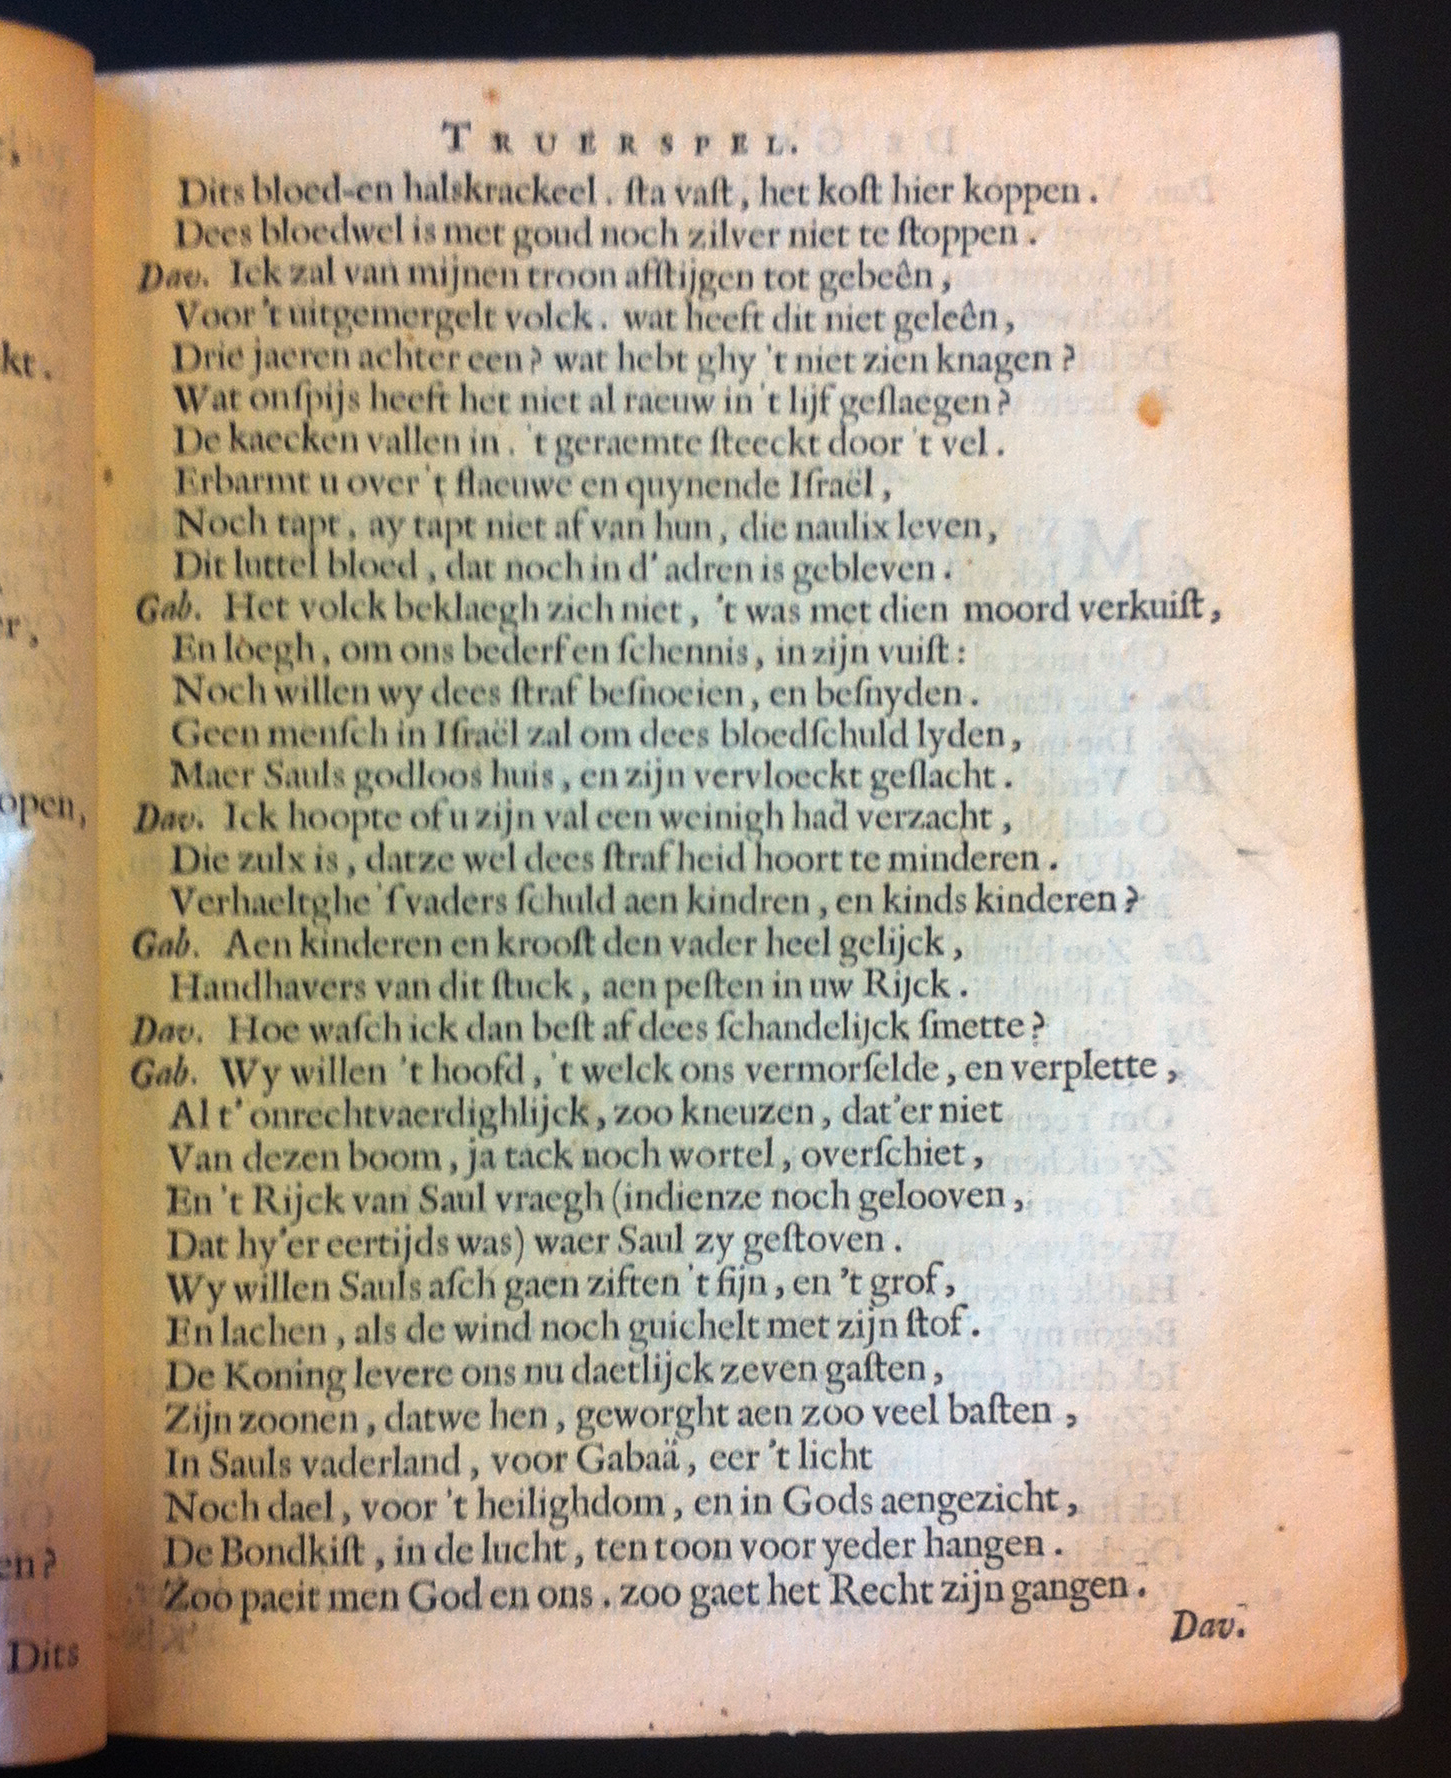 kt.
er,
open,
en?
Dits
TRUERSPEL.
Dits bloed-en halskrackeel. ſta vaſt, het koſt hier koppen.
Dees bloedwel is met goud noch zilver niet te ſtoppen.
Dav. Ick zal van mijnen troon afſtijgen tot gebeên,
Voor 't uitgemergelt volck. wat heeft dit niet geleên,
Drie jaeren achter een? wat hebt ghy 't niet zien knagen?
Wat onſpijs heeft het niet al raeuw in 't lijf geſlaegen?
De kaecken vallen in. 't geraemte ſteeckt door 't vel.
Erbarmt u over 't flaeuwe en quynende Iſraël,
Noch tapt, ay tapt niet af van hun, die naulix leven,
Dit luttel bloed, dat noch in d' adren is gebleven.
Gab. Het volck beklaegh zich niet, 't was met dien moord verkuiſt,
En loegh, om ons bederf en ſchennis, in zijn vuiſt:
Noch willen wy dees ſtraf beſnoeien, en beſnyden.
Geen menſch in Iſraël zal om dees bloedſchuld lyden,
Maer Sauls godloos huis, en zijn vervloeckt geſlacht.
Dav. Ick hoopte of u zijn val een weinigh had verzacht,
Die zulx is, datze wel dees ſtrafheid hoort te minderen.
Verhaeltghe 'ſvaders ſchuld aen kindren, en kinds kinderen?
Gab. Aen kinderen en krooſt den vader heel gelijck,
Handhavers van dit ſtuck, aen peſten in uw Rijck.
Dav. Hoe waſch ick dan beſt af dees ſchandelijck ſmette?
Gab. Wy willen 't hoofd, 't welck ons vermorſelde, en verplette,
Al t' onrechtvaerdighlijck, zoo kneuzen, dat'er niet
Van dezen boom, ja tack noch wortel, overſchiet,
En 't Rijck van Saul vraegh (indienze noch gelooven,
Dat hy'er eertijds was) waer Saul zy geſtoven.
Wy willen Sauls aſch gaen ziften 't fijn, en 't grof,
En lachen, als de wind noch guichelt met zijn ſtof.
De Koning levere ons nu daetlijck zeven gaſten,
Zijn zoonen, datwe hen, geworght aen zoo veel baſten,
In Sauls vaderland, voor Gabaä, eer 't licht
Noch dael, voor 't heilighdom, en in Gods aengezicht,
De Bondkiſt, in de lucht, ten toon voor yeder hangen.
Zoo paeit men God en ons. zoo gaet het Recht zijn gangen.
Dav.